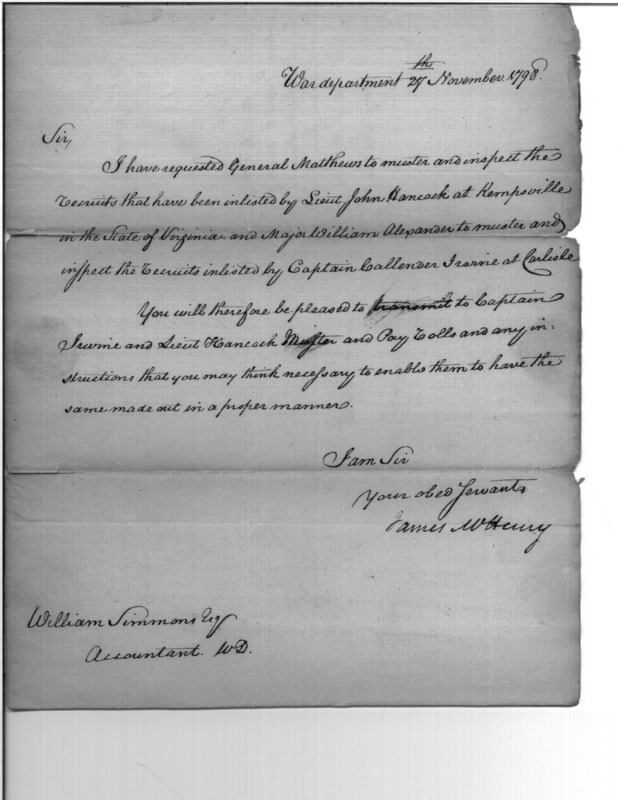 War department 27th November 1798.
Sir,
I have requested General Matthews to muster and inspect the
Recruits that have been inlisted by Lieut John Hancock at Kempsville
in the State of Virginia and Major William Alexander to muster and
inspect the Recruits inlisted by Captain Callender Irvine at Carlisle
You will therefore be pleased to transmit to Captain
Irwine and Lieut Hancock Muster and Pay Rolls and any in-
structions that you may think necessary to enable them to have the
same made out in a proper manner.
I am Sir
Your obed Servants
James McHenry
William Simmons Esq
Accountant. WD.